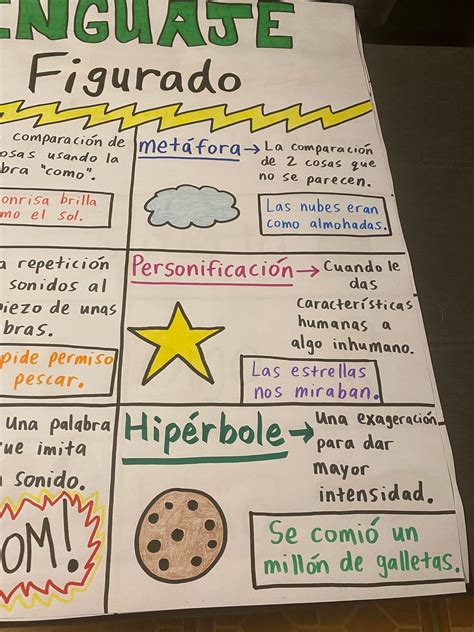 ENGUAJE
Figurado
comparación de
osas usando la
bra "como".
onrisa brilla
mo el sol.
metáfora → La comparación
de 2 cosas que
no se parecen.
Las nubes eran
como almohadas.
a repetición
sonidos al
iezo de unas
bras.
pide permiso
pescar.
Personificación → Cuando le
das
características
humanas a
algo inhumano.
Las estrellas
nos miraban.
Una palabra
ue imita
sonido.
OM!
Hipérbole → Una exageración
para dar
mayor
intensidad.
Se comió un
millón de galletas.